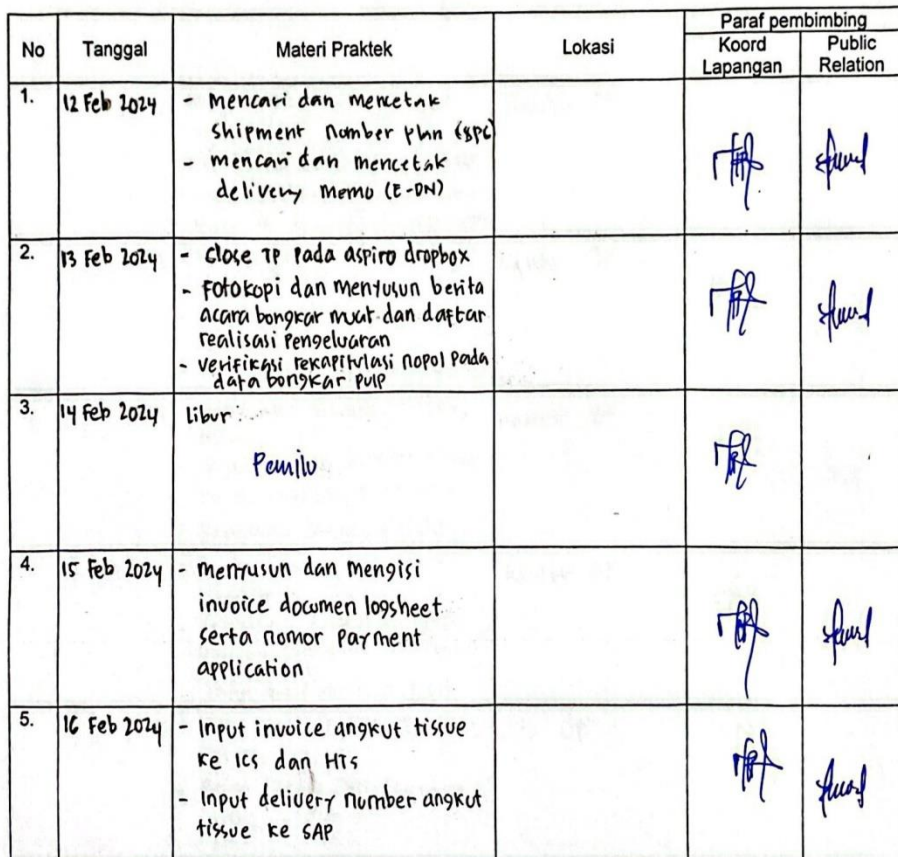 No Tanggal Materi Praktek Lokasi Paraf pembimbing
Koord Lapangan Public Relation
1. 12 Feb 2024 - mencari dan mencetak
shipment number plan (spc)
- mencari dan mencetak
delivery memo (E-DN)
2. 13 Feb 2024 - Close TP Pada aspiro dropbox
- Fotokopi dan menyusun berita
acara bongkar muat dan daftar
realisasi Pengeluaran
- verifikasi rekapitulasi nopol Pada
data bongkar pulp
3. 14 Feb 2024 Libur
Pemilu
4. 15 Feb 2024 - menyusun dan mengisi
invoice documen logsheet
serta nomor Payment
application
5. 16 Feb 2024 - Input invoice angkut tissue
ke ICS dan HTS
- Input delivery number angkut
tissue ke SAP